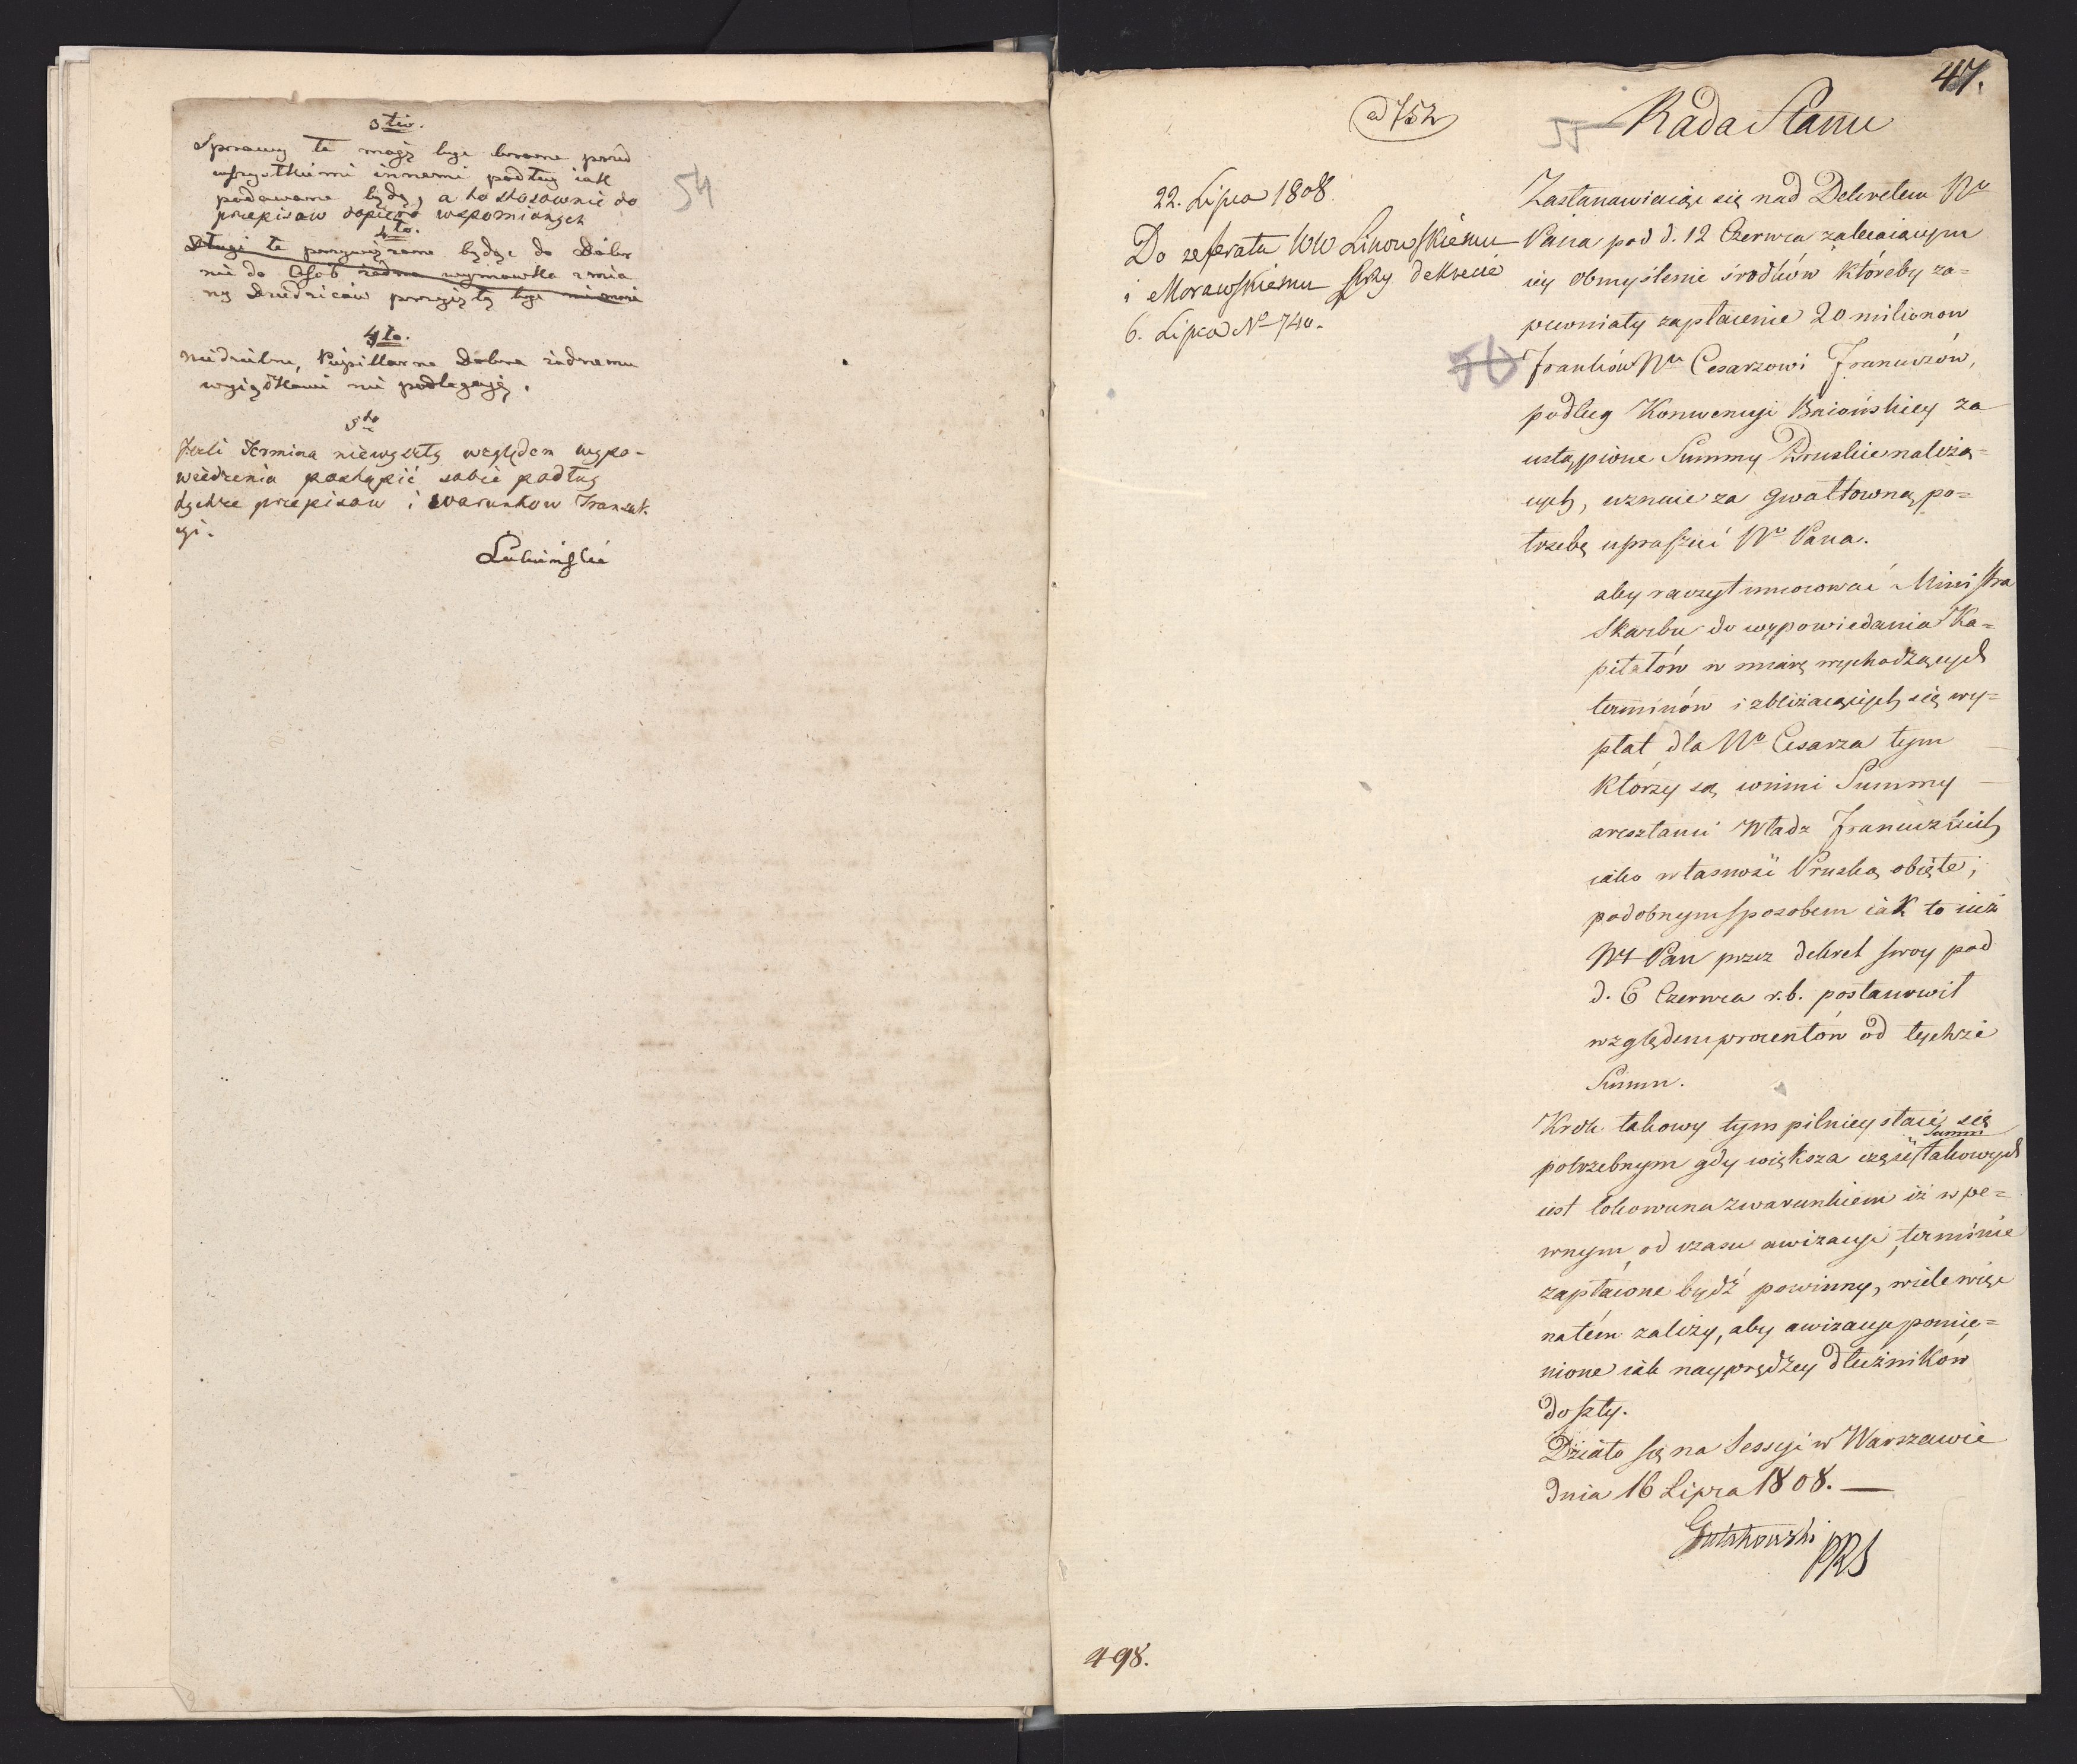 3tio.
Sprawy te mogą bydź brane przed
wszystkiemi innemi podług iak
podawane będą, a to stosownie do
przepisow dopiero wspomionych
4to.
Długi te przywiązane będąc do Dobr
nie do Osob żadna wymowka zmia
ny Dziedzicow przyiętą bydź nie może
4to.
niedzielne, Pupillarne Dobra żadnemu
wyiątkowi nie podlegaią.
5to
Jeżeli Termina niewyszły względem wypo-
wiedzenia postąpić sobie podług
tychże przepisow i warunkow Transak-
cyi.
Lubieński
54
47.
ad 752
55
Rada Stanu
22. Lipca 1808.
Do referatu WW Linowskiemu
i Morawskiemu przy dekrecie
6. Lipca No 740.
Zastanawiaiąc się nad Dekretem No
Pana pod d. 12 Czerwca zalecaiącym
iey obmyślenie środków któreby za=
pewniały zapłacenie 20 milionow
56
franków No Cesarzowi Francuzów,
podług Konwencyi Baiońskiey za
ustąpione Summy Pruskie należą=
cych, uznaie za gwałtowną po=
trzebę upraszać No Pana.
aby raczył umocować Ministra
Skarbu do wypowiedania Ka=
pitałów w miarę wychodzących
terminów i zbliżaiących się wy=
płat dla No Cesarza tym
którzy są winni Summy
aresztami Władz francuzkich
iako własność Pruską obięte;
podobnym sposobem iak to iuż
NY Pan przez dekret swoy pod
d. 6 Czerwca r. b. postanowił
względem procentów od tychże
Summ.
Krok takowy tym pilniey staie się
potrzebnym gdy większa część takowych
Summ
iest lokowana z warunkiem iż w pe=
wnym, od czasu awizacyi, terminie
zapłacone bydź powinny, wiele więc
na tém zależy, aby awizacye pomie=
nione iak nayprędzey dłużników
doszły.
Działo się na Sessyi w Warszawie
dnia 16 Lipca 1808.
Gutakowski PRS
498.